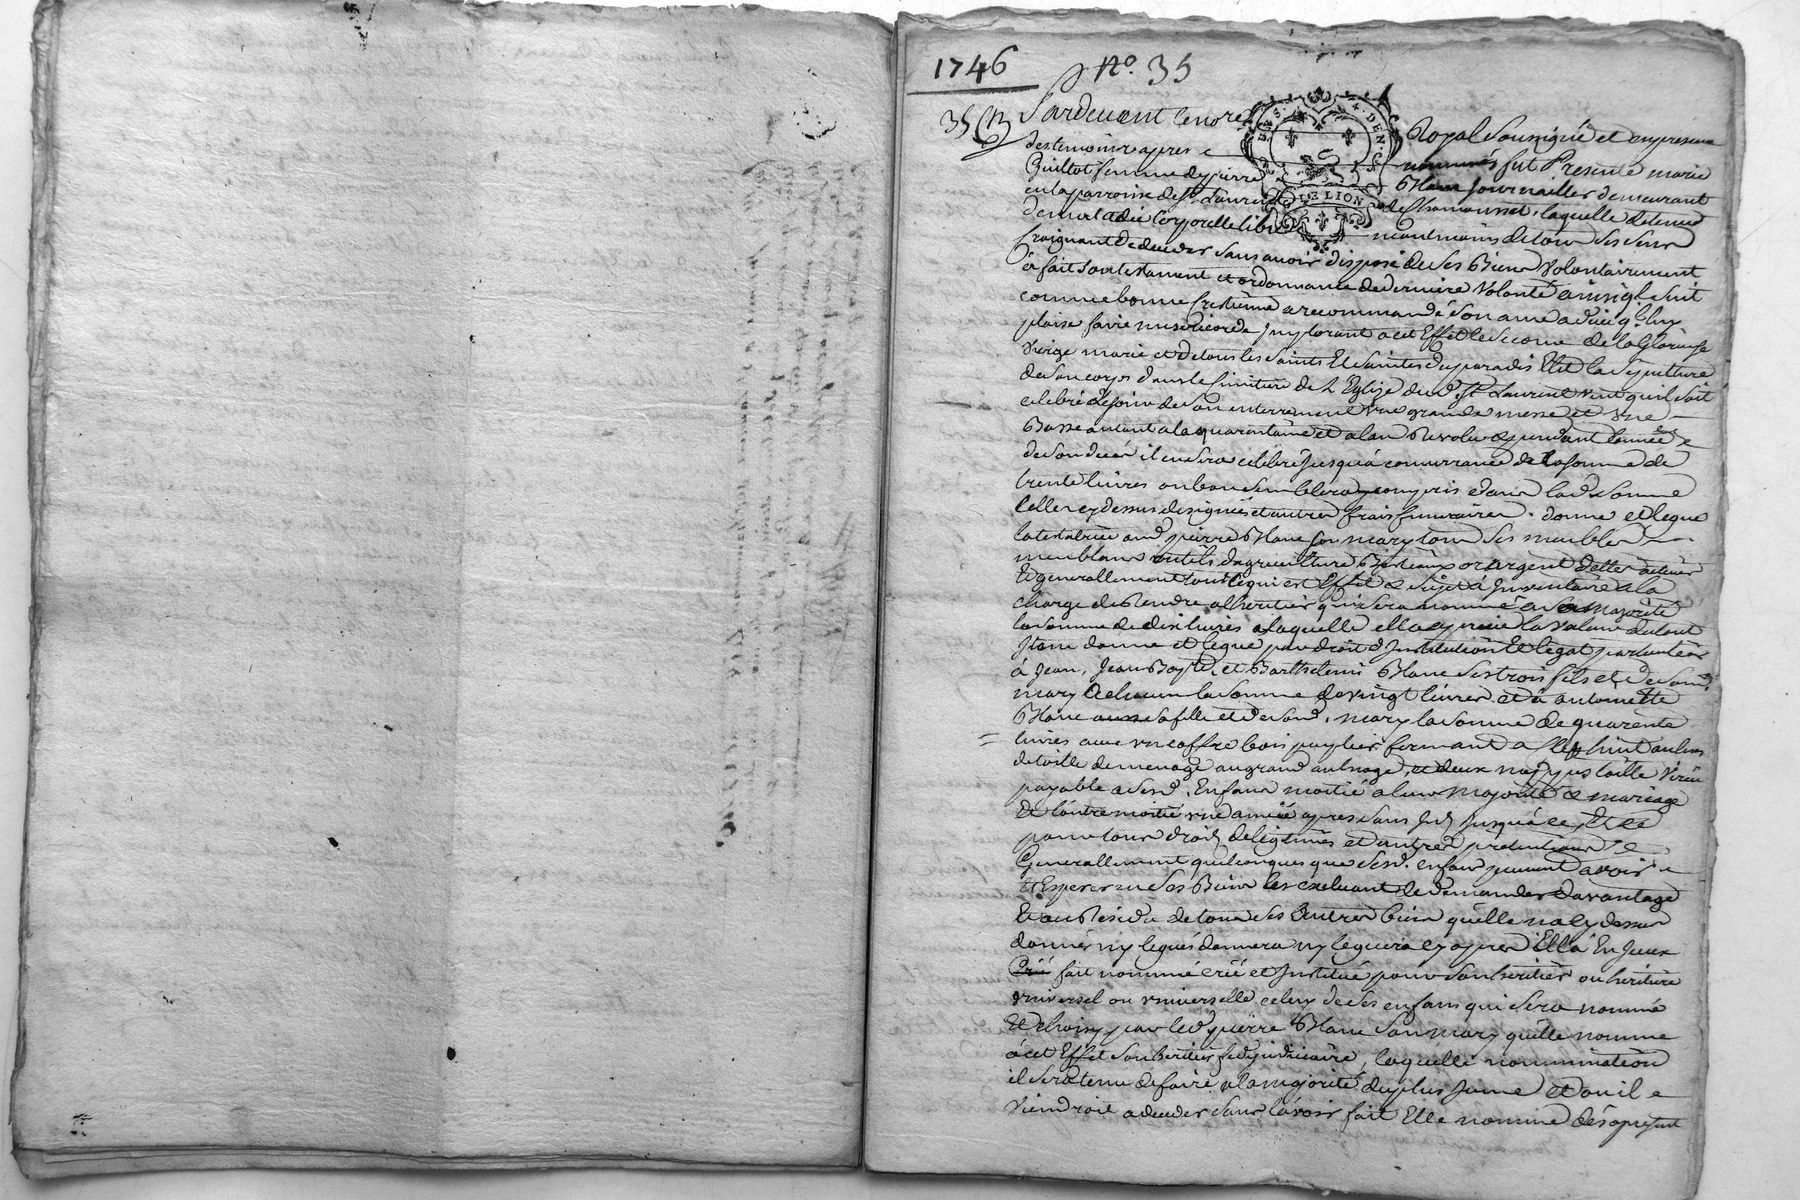 1746 N.º 35
35
Pardevant le no.re Royal Sousigné et en presence
des temoins apres nommés fut Presente marie
Guillot femme de pierre Blanc Journaillier demeurant
en la parroisse de S.t Laurent de Chamousset, laquelle detenue
de maladie Corporelle libre neantmoins de tous ses sens
Craignant de deceder sans avoir disposé de ses Biens Volontairement
à fait son testament et ordonnance de derniere Volonté ainsi q.l suit
comme bonne Crétienne a recommandé son ame a dieu q.l luy
plaise faire misericorde Jmplorant a cet Effet le secour de la Glorieuse
Vierge marie et de tous les saints Et saintes du paradis Elit la sepulture
de son corps dans le simitiere de L'Eglize dud. S.t Laurent veut qu'il soit
celebré le jour de son enterrement une grande messe et une
Basse autant a la quarantaine et a l'an Revolu & pendant l'année
de son decés il en sera celebré jusqu'a concurrance de la somme de
trente livres ou bon semblera y compris dans lad. somme
Celle cy dessus designée et autres frais funeraires. donne et legue
la testatrice aud. pierre Blanc son mary tous ses meubles
meublans outils d'agriculture Bestiaux or argent dettes actives
Et generallement tout ce qui est Effet & sujet a Inventaire a la
charge de Rendre a l'heritier qui sera nommé a sa majorité
la somme de dix livres a laquelle elle a aprecié la valeur du tout
Jtem donne et legue par droit d'Institution Et legat particulier
à Jean, Jean Bapt.e et Barthelemi Blanc ses trois fils et de son d.
mary a chacun la somme de vingt livres et à antoinette
Blanc aussi sa fille et de sond. mary la somme de quarente
livres avec un coffre bois fermant a clef huit aulnes
de toille de menage au grand aulnage, et deux
payable a sesd. Enfans moitié a leur majorité & mariage
Et l'autre moitié une année apres sans Jusqu'a ce, Et ce
pour tous droits de legitimes et autres pretentions
Generallement quelconques que sesd. enfans peuvent avoir
Et Esperer en ses Biens les excluant de demander davantage
Et au Residu de tous ses autres biens qu'elle na cy dessus
donnés ny legués donnera ny leguera cy apres Ella En Iceux
Créé fait nommé créé et Jnstitué pour son heritier ou heritiere
universel ou universelle celuy de ses enfans qui sera nommé
Et choisy par led. pierre Blanc son mary qu'elle nomme
à cet Effet son heritier fideju diciaire, laquelle nommination
il sera tenu de faire a la majorité du plus Jeune et ou il
viendroit a deceder sans l'avoir fait Elle nomme des a present
LE LION